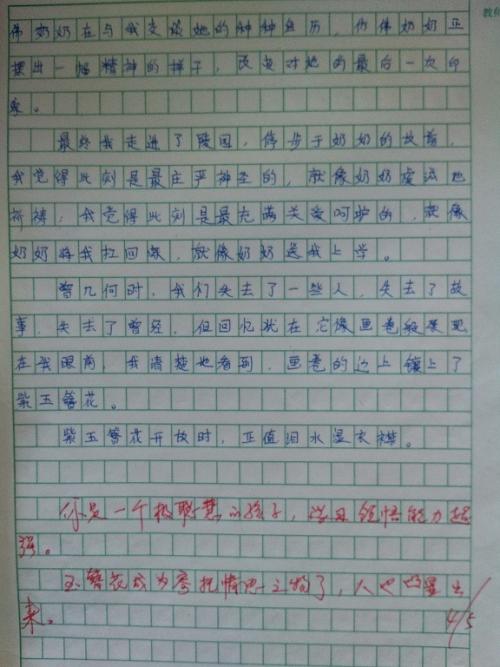 佛奶奶在与我交谈她的种种经历，仿佛奶奶正
摆出一幅精神的样子，改变对她的最后一次印
象。
最终我走进了陵园，停步于奶奶的故前，
我觉得此刻是最庄严神圣的，就像奶奶虔诚地
祈祷；我觉得此刻是最充满关爱呵护的，就像
奶奶将我扛回家，就像奶奶送我上学。
曾几何时，我们失去了一些人，失去了故
事，失去了曾经，但回忆犹在，它像画卷般展现
在我眼前，我清楚地看到，画卷的边上镶上了
紫玉簪花。
紫玉簪花开放时，正值泪水湿衣襟。
你是一个极聪慧的孩子，学习领悟能力超
强。
玉簪花成为寄托情思之物了，人也凸显出
来。
45